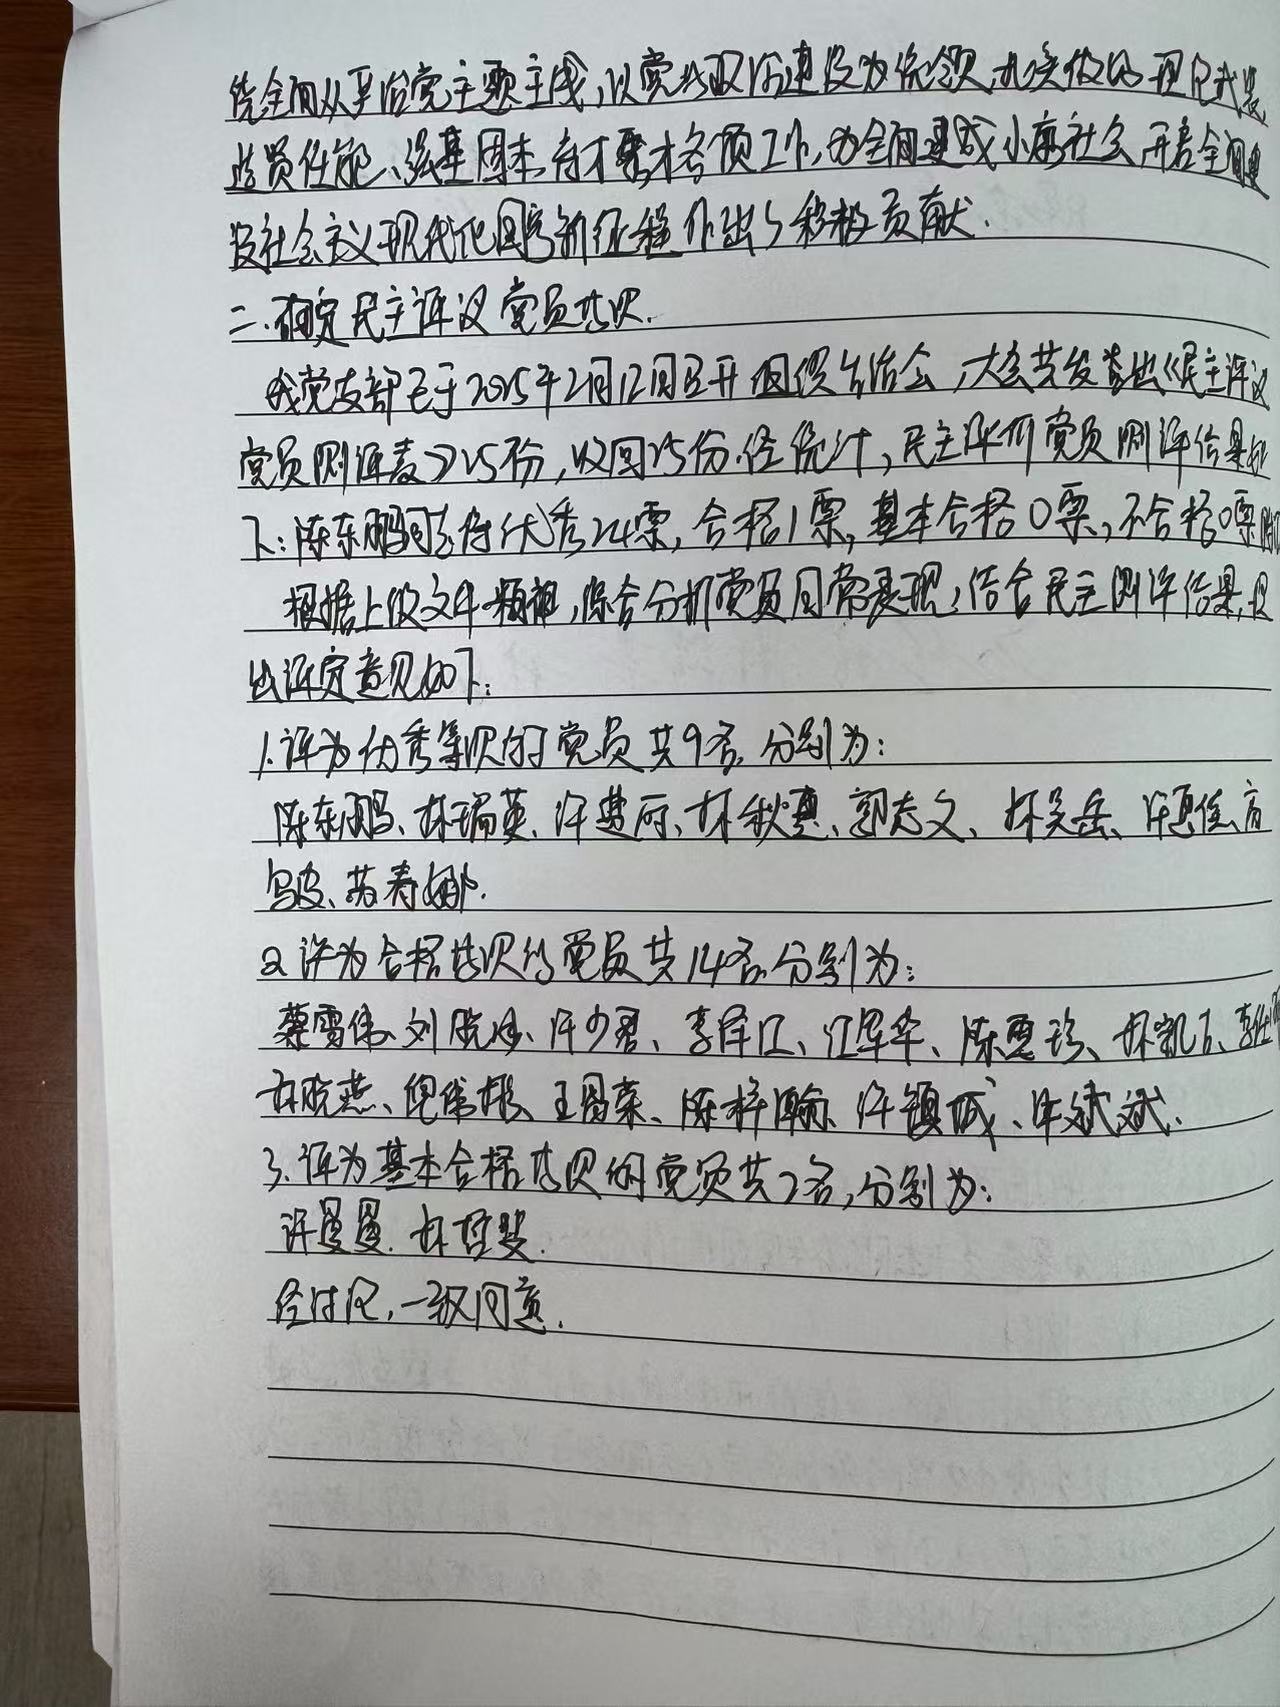 全面从严治党主题主线,以党的政治建设为统领,扎实做好理论武装
选贤任能、强基固本、育才聚才各项工作,为全面建成小康社会、开启全面建
设社会主义现代化国家新征程作出了积极贡献.
二.确定民主评议党员等次.
我党支部已于2025年2月12日召开组织生活会,大会共发出《民主评议
党员测评表》25份,收回25份.经统计,民主评议党员测评结果如
下:陈东鹏同志得优秀24票,合格1票,基本合格0票,不合格0票
根据上级文件精神,综合分析党员日常表现,结合民主测评结果,提
出评定意见如下:
1.评为优秀等次的党员共9名,分别为:
陈东鹏、林瑞英、许楚丽、林秋惠、郭志文、林
苏寿娜.
2.评为合格等次的党员共14名,分别为:
蔡雪伟、刘、许少君、李泽江、江军华、陈雪珍、林凯
林晓燕、倪伟彬、王图荣、陈梓瀚、许镇城、许斌斌.
3.评为基本合格等次的党员共2名,分别为:
许曼曼.林哲斐.
经讨论,一致同意.